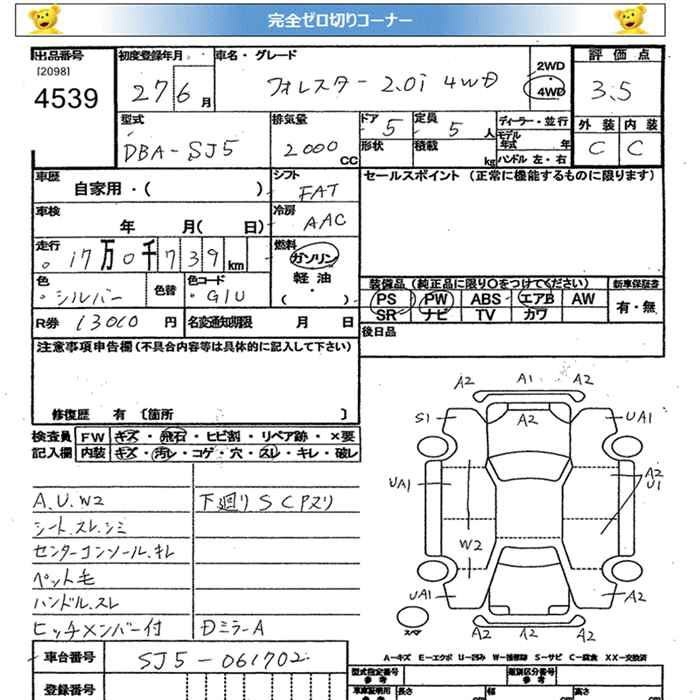 完全ゼロ切りコーナー
出品番号 初度登録年月 車名・グレード 評価点
[2098] 4539 27 6月 フォレスター 2.0i 4WD 2WD・4WD 3.5
型式 排気量 ドア 定員 ディーラー・並行 外装 内装
DBA-SJ5 2000CC 5 5人 モデル年式 年 C C
形状 積載 kg ハンドル 左・右
車歴 自家用・( ) シフト FAT セールスポイント (正常に機能するものに限ります)
車検 年 月( 日) 冷房 AAC
走行 17万0千739km 燃料 ガソリン 軽油・( )
色 シルバー 色替 色コード G1U
装備品 (純正品に限り○をつけてください) 新車保証書
PS PW ABS エアB AW 有・無
SR ナビ TV カワ
R券 13010円 名変通知期限 月 日 後日品
注意事項申告欄 (不具合内容等は具体的に記入して下さい)
修復歴 有〔箇所 〕
検査員記入欄 FW キズ・飛石・ヒビ割・リペア跡・×要
内装 キズ・汚レ・コゲ・穴・スレ・キレ・破レ
A.U.W2 下廻りSCPヌリ
シート.スレ.シミ
センターコンソール.キレ
ペット毛
ハンドル.スレ
ヒッチメンバー付 Dミラー A
A2 A1 A2
S1 A2 UA1
UA1 A2 U1
W2
UA1 A2
スペア A2 A2 A2
A-キズ E-エクボ U-凹み W-補修跡 S-サビ C-腐食 XX-交換済
車台番号 SJ5-061702
登録番号
型式指定番号 参考 類別区分番号 参考
車庫証明用 参考 長さ cm 幅 cm 高さ cm